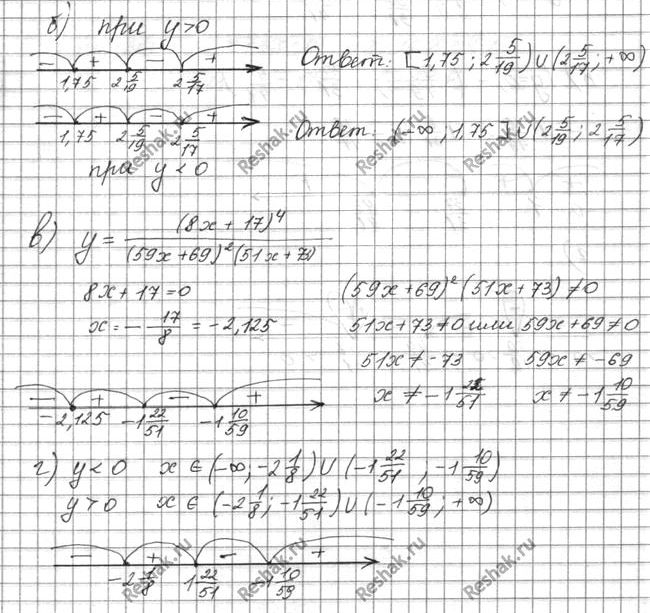 б) при y>0
− + − +
1,75 2 5/19 2 5/17
Ответ: [1,75 ; 2 5/19) ∪ (2 5/17 ; +∞)
− + − +
1,75 2 5/19 2 5/17
Ответ: (−∞ ; 1,75 ] ∪ (2 5/19 ; 2 5/17)
при y < 0
в) y = (8x + 17)^4 / (59x+69)^2 (51x+73)
8x + 17 = 0
x = − 17/8 = −2,125
(59x+69)^2 (51x+73) ≠ 0
51x+73 ≠ 0 или 59x+69 ≠ 0
51x ≠ −73 59x ≠ −69
x ≠ −1 22/51 x ≠ −1 10/59
− + − +
−2,125 −1 22/51 −1 10/59
г) y < 0 x ∈ (−∞; −2 1/8) ∪ (−1 22/51 ; −1 10/59)
y > 0 x ∈ (−2 1/8; −1 22/51) ∪ (−1 10/59; +∞)
− + − +
−2 1/8 1 22/51 −1 10/59
Reshak.ru
Reshak.ru
Reshak.ru
Reshak.ru
Reshak.ru
Reshak.ru